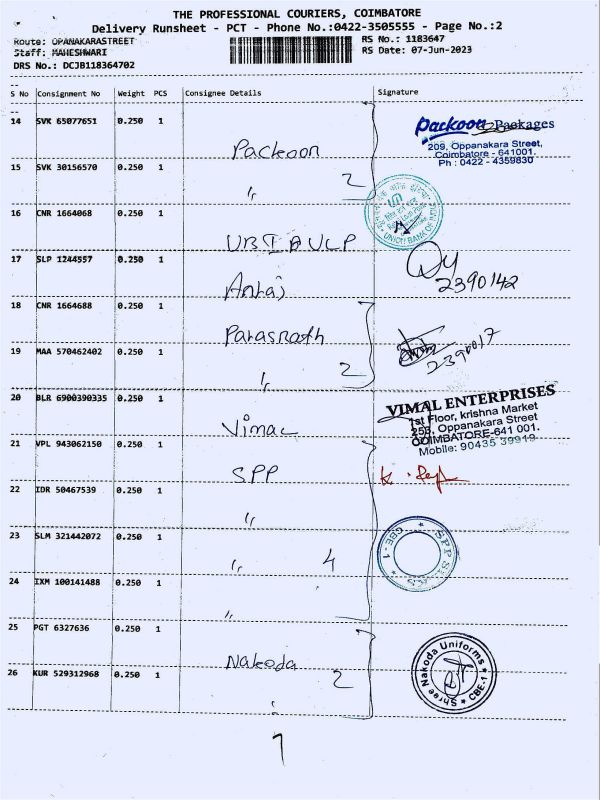 THE PROFESSIONAL COURIERS, COIMBATORE
Delivery Runsheet - PCT - Phone No.:0422-3505555 - Page No.:2
Route: OPANAKARASTREET
RS No.: 1183647
Staff: MAHESHWARI
RS Date: 07-Jun-2023
DRS No.: DCJB118364702
S No Consignment No Weight PCS Consignee Details Signature
14 SVK 65077651 0.250 1 Packoon
Packoon Packages
209, Oppanakara Street,
Coimbatore - 641001.
Ph : 0422 - 4359830
15 SVK 30156570 0.250 1 " 2
16 CNR 1664068 0.250 1 UBI
UNION BANK OF INDIA
17 SLP 1244557 0.250 1
2390142
18 CNR 1664688 0.250 1 Parasnath
19 MAA 570462402 0.250 1 " 2
20 BLR 6900390335 0.250 1 Vimal
VIMAL ENTERPRISES
1st Floor, krishna Market
258, Oppanakara Street
COIMBATORE-641 001.
Mobile: 90435 39919
21 VPL 943062150 0.250 1 SPP
22 IDR 50467539 0.250 1 "
23 SLM 321442072 0.250 1 " 4
CBE - 1
24 IXM 100141488 0.250 1 "
25 PGT 6327636 0.250 1 Nakoda
Shree Nakoda Uniforms
CBE-1
26 KUR 529312968 0.250 1 2
7